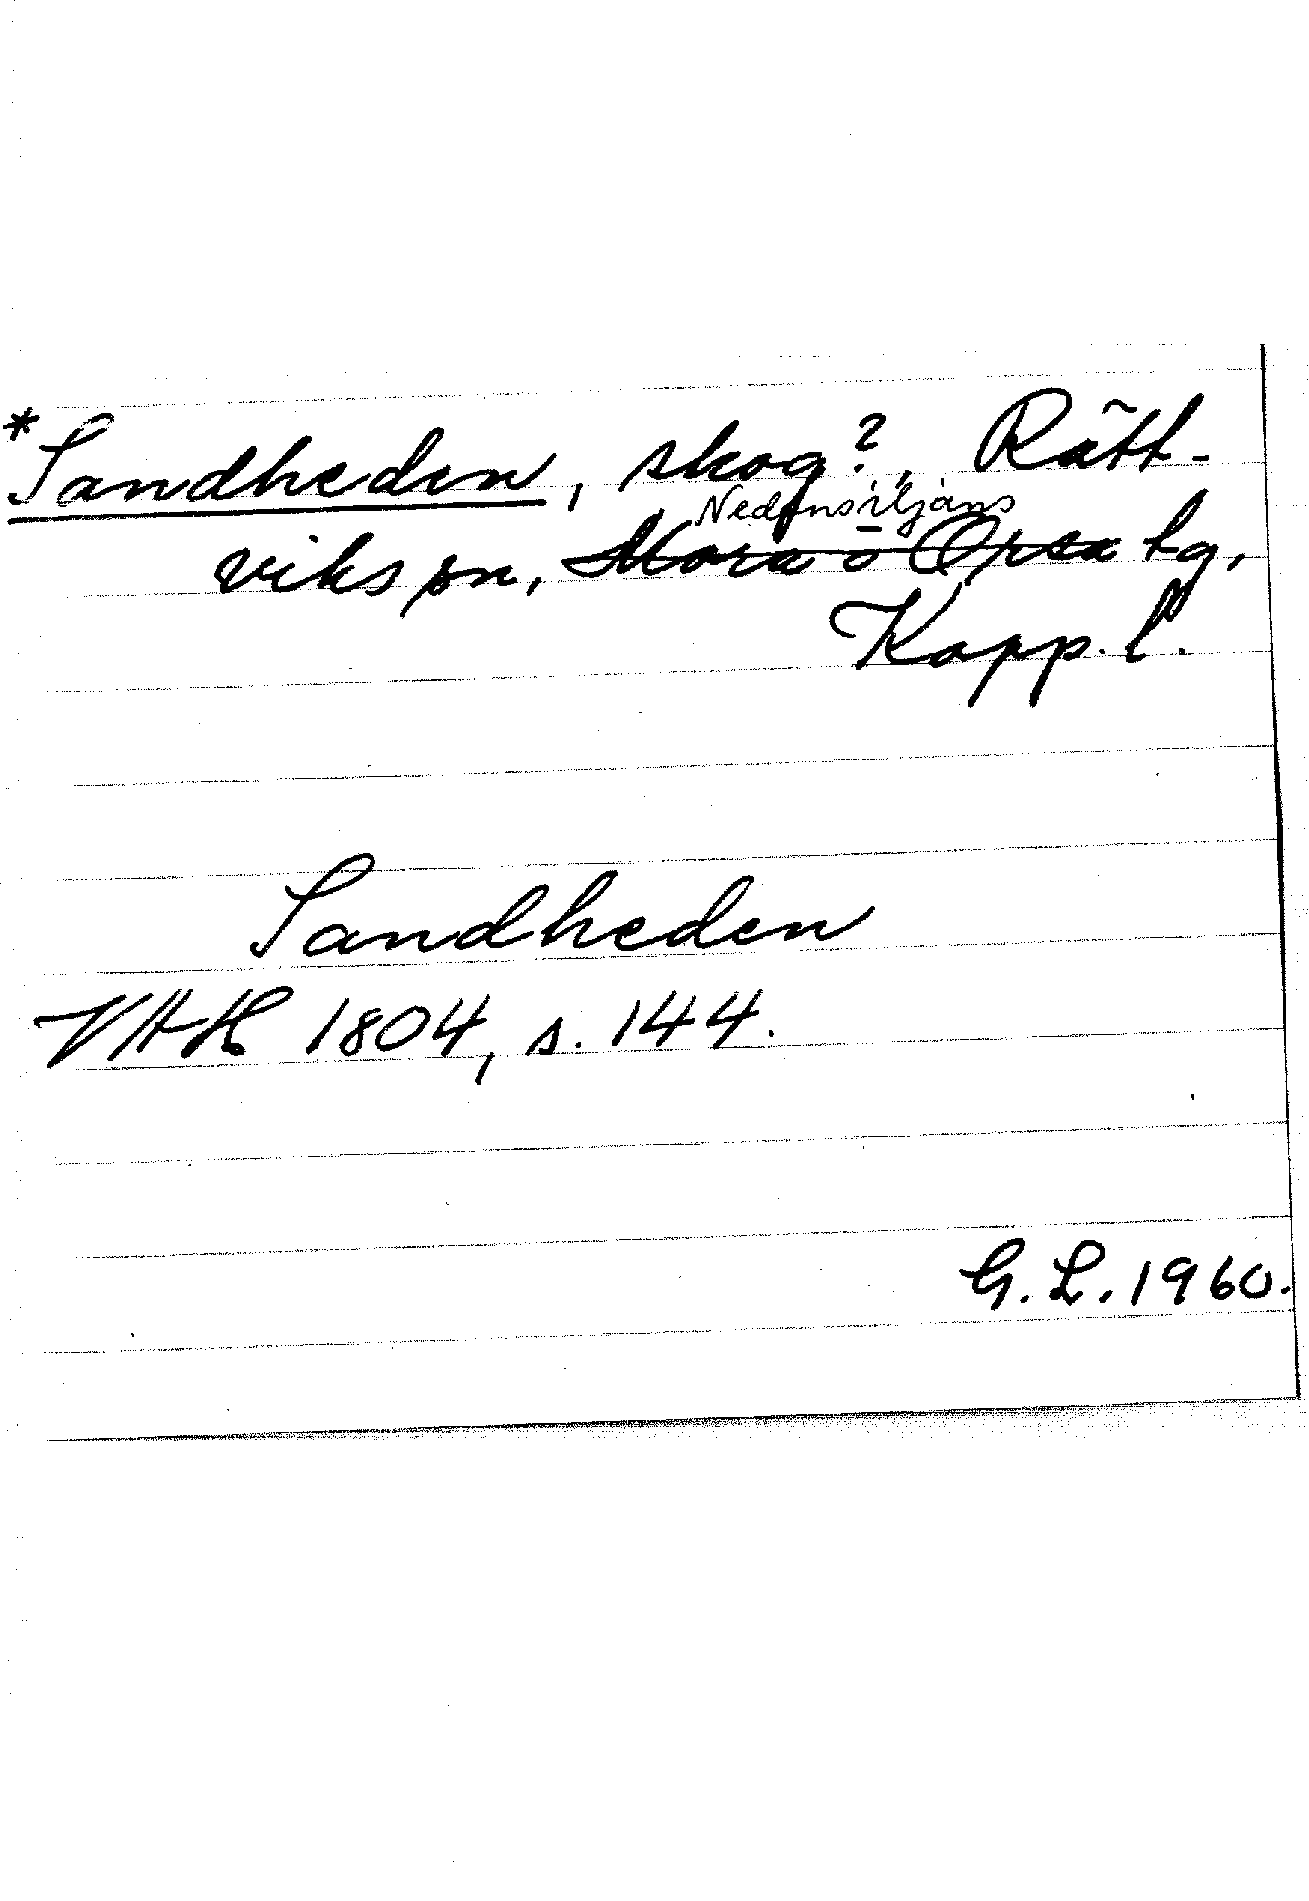 *Sandheden, skog?, Rätt-
Nedansiljans
viks sn, Mora o Orsa tg,
Kopp. l.
Sandheden
VAH 1804, s. 144.
G. L. 1960.